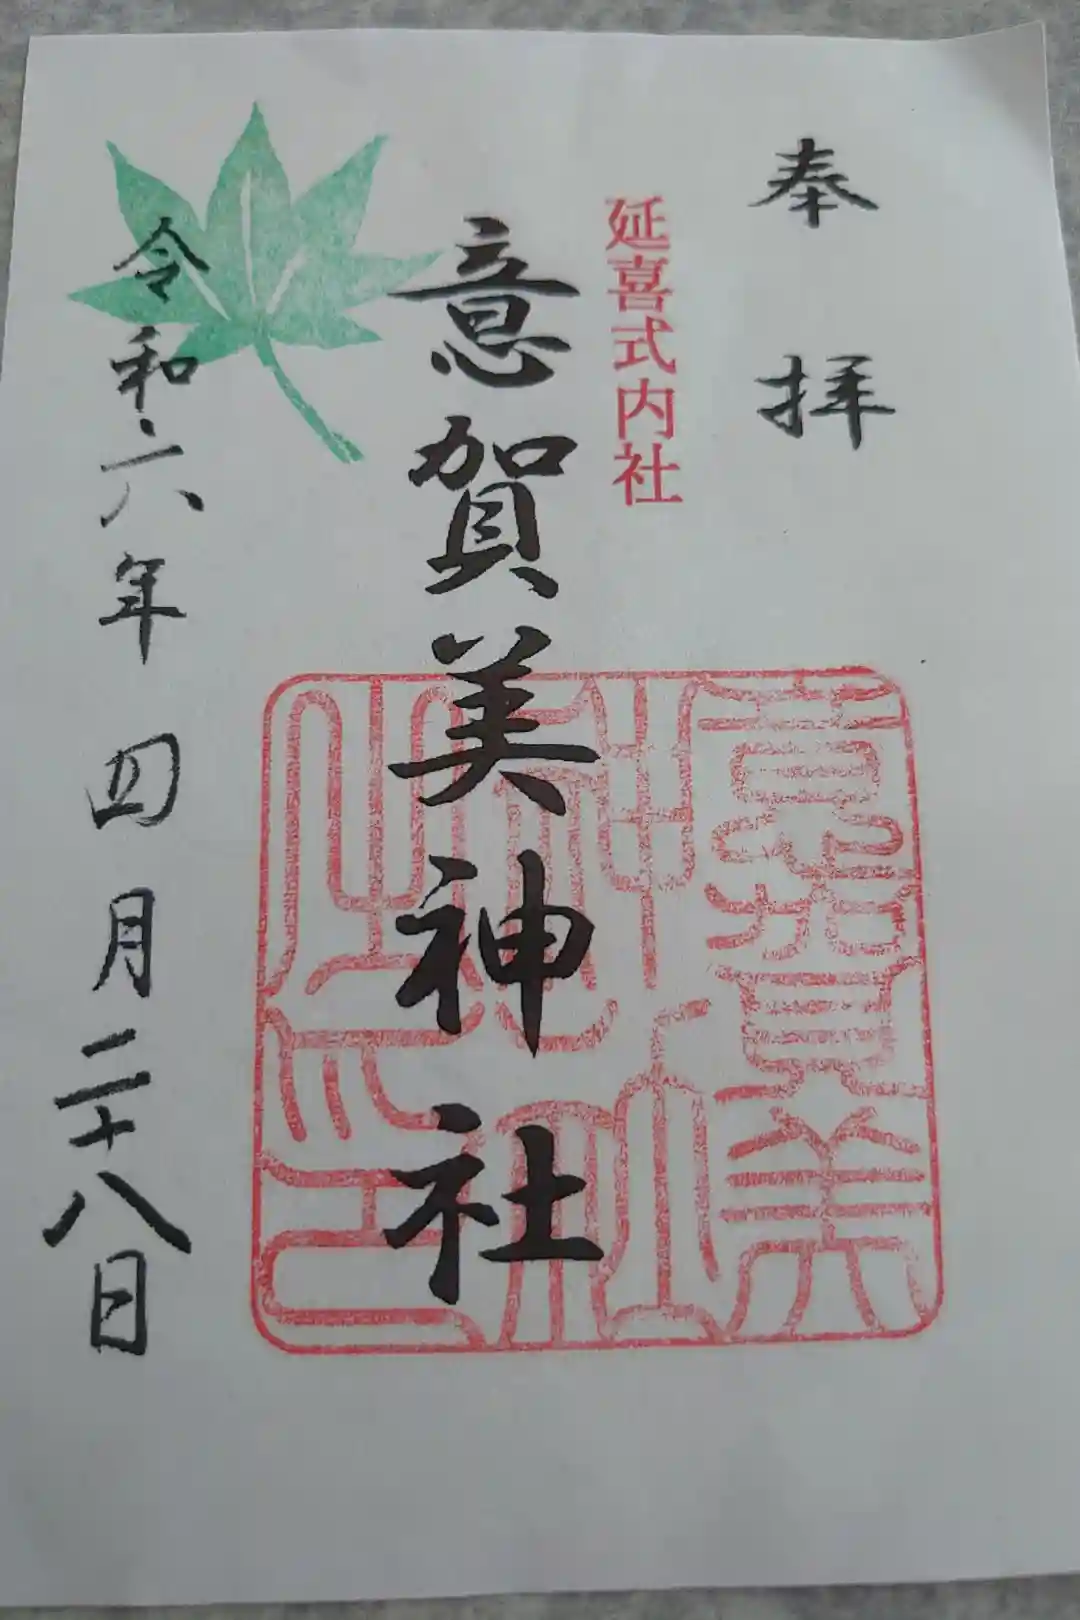 奉拝
延喜式内社
意賀美神社
意賀美神社之印
令和六年四月二十八日